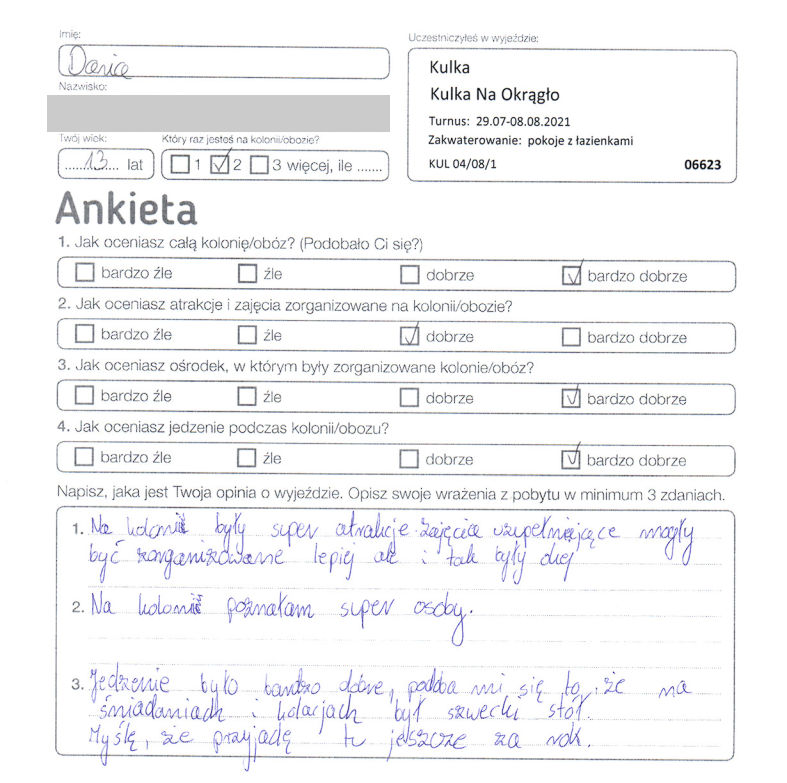 Imię:
Daria
Nazwisko:
Twój wiek:
13 lat
Który raz jesteś na kolonii/obozie?
1 2 3 więcej, ile .......
Uczestniczyłeś w wyjeździe:
Kulka
Kulka Na Okrągło
Turnus: 29.07-08.08.2021
Zakwaterowanie: pokoje z łazienkami
KUL 04/08/1 06623
Ankieta
1. Jak oceniasz całą kolonię/obóz? (Podobało Ci się?)
bardzo źle źle dobrze bardzo dobrze
2. Jak oceniasz atrakcje i zajęcia zorganizowane na kolonii/obozie?
bardzo źle źle dobrze bardzo dobrze
3. Jak oceniasz ośrodek, w którym były zorganizowane kolonie/obóz?
bardzo źle źle dobrze bardzo dobrze
4. Jak oceniasz jedzenie podczas kolonii/obozu?
bardzo źle źle dobrze bardzo dobrze
Napisz, jaka jest Twoja opinia o wyjeździe. Opisz swoje wrażenia z pobytu w minimum 3 zdaniach.
1. Na kolonii były super atrakcje. Zajęcia uzupełniające mogły
być zorganizowane lepiej ale i tak były okej
2. Na kolonii poznałam super osoby.
3. Jedzenie było bardzo dobre, podoba mi się to, że na
śniadaniach i kolacjach był szwecki stół.
Myślę, że przyjadę tu jeszcze za rok.